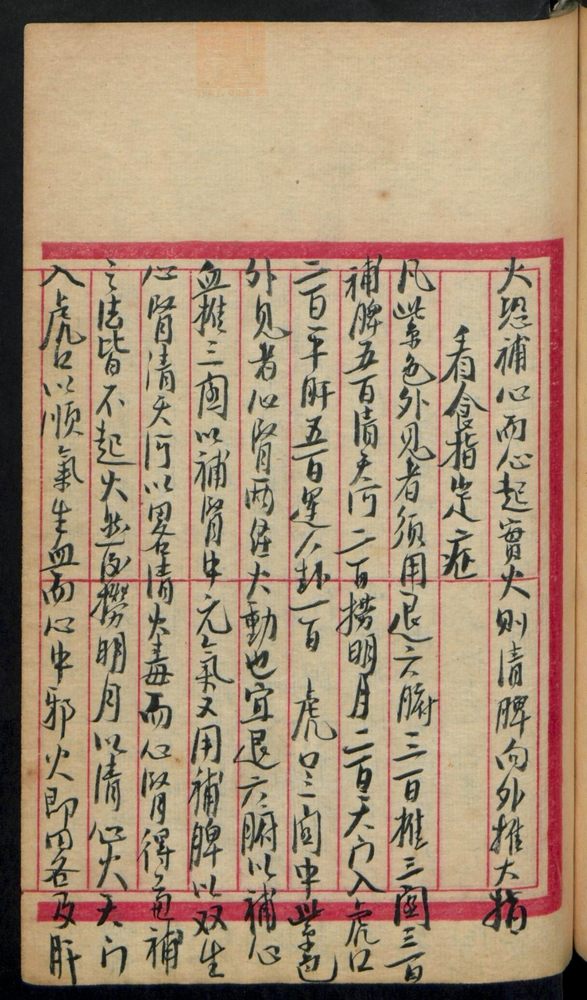 火恐補心而心起實火則清脾向外推大指
看食指定症
凡紫色外見者須用退六腑三百推三関三百
補脾五百清天河二百撈明月二百天门入虎口
二百平肝五百運八卦一百 虎口三関中紫色
外見者心腎両経火動也宜退六腑以補心
血推三関以補腎中元氣又用補脾以双生
心腎清天河以畧清火毒而心腎得兼補
之法皆不起火然後撈明月以清心火天门
入虎口以順氣生血而心中邪火即